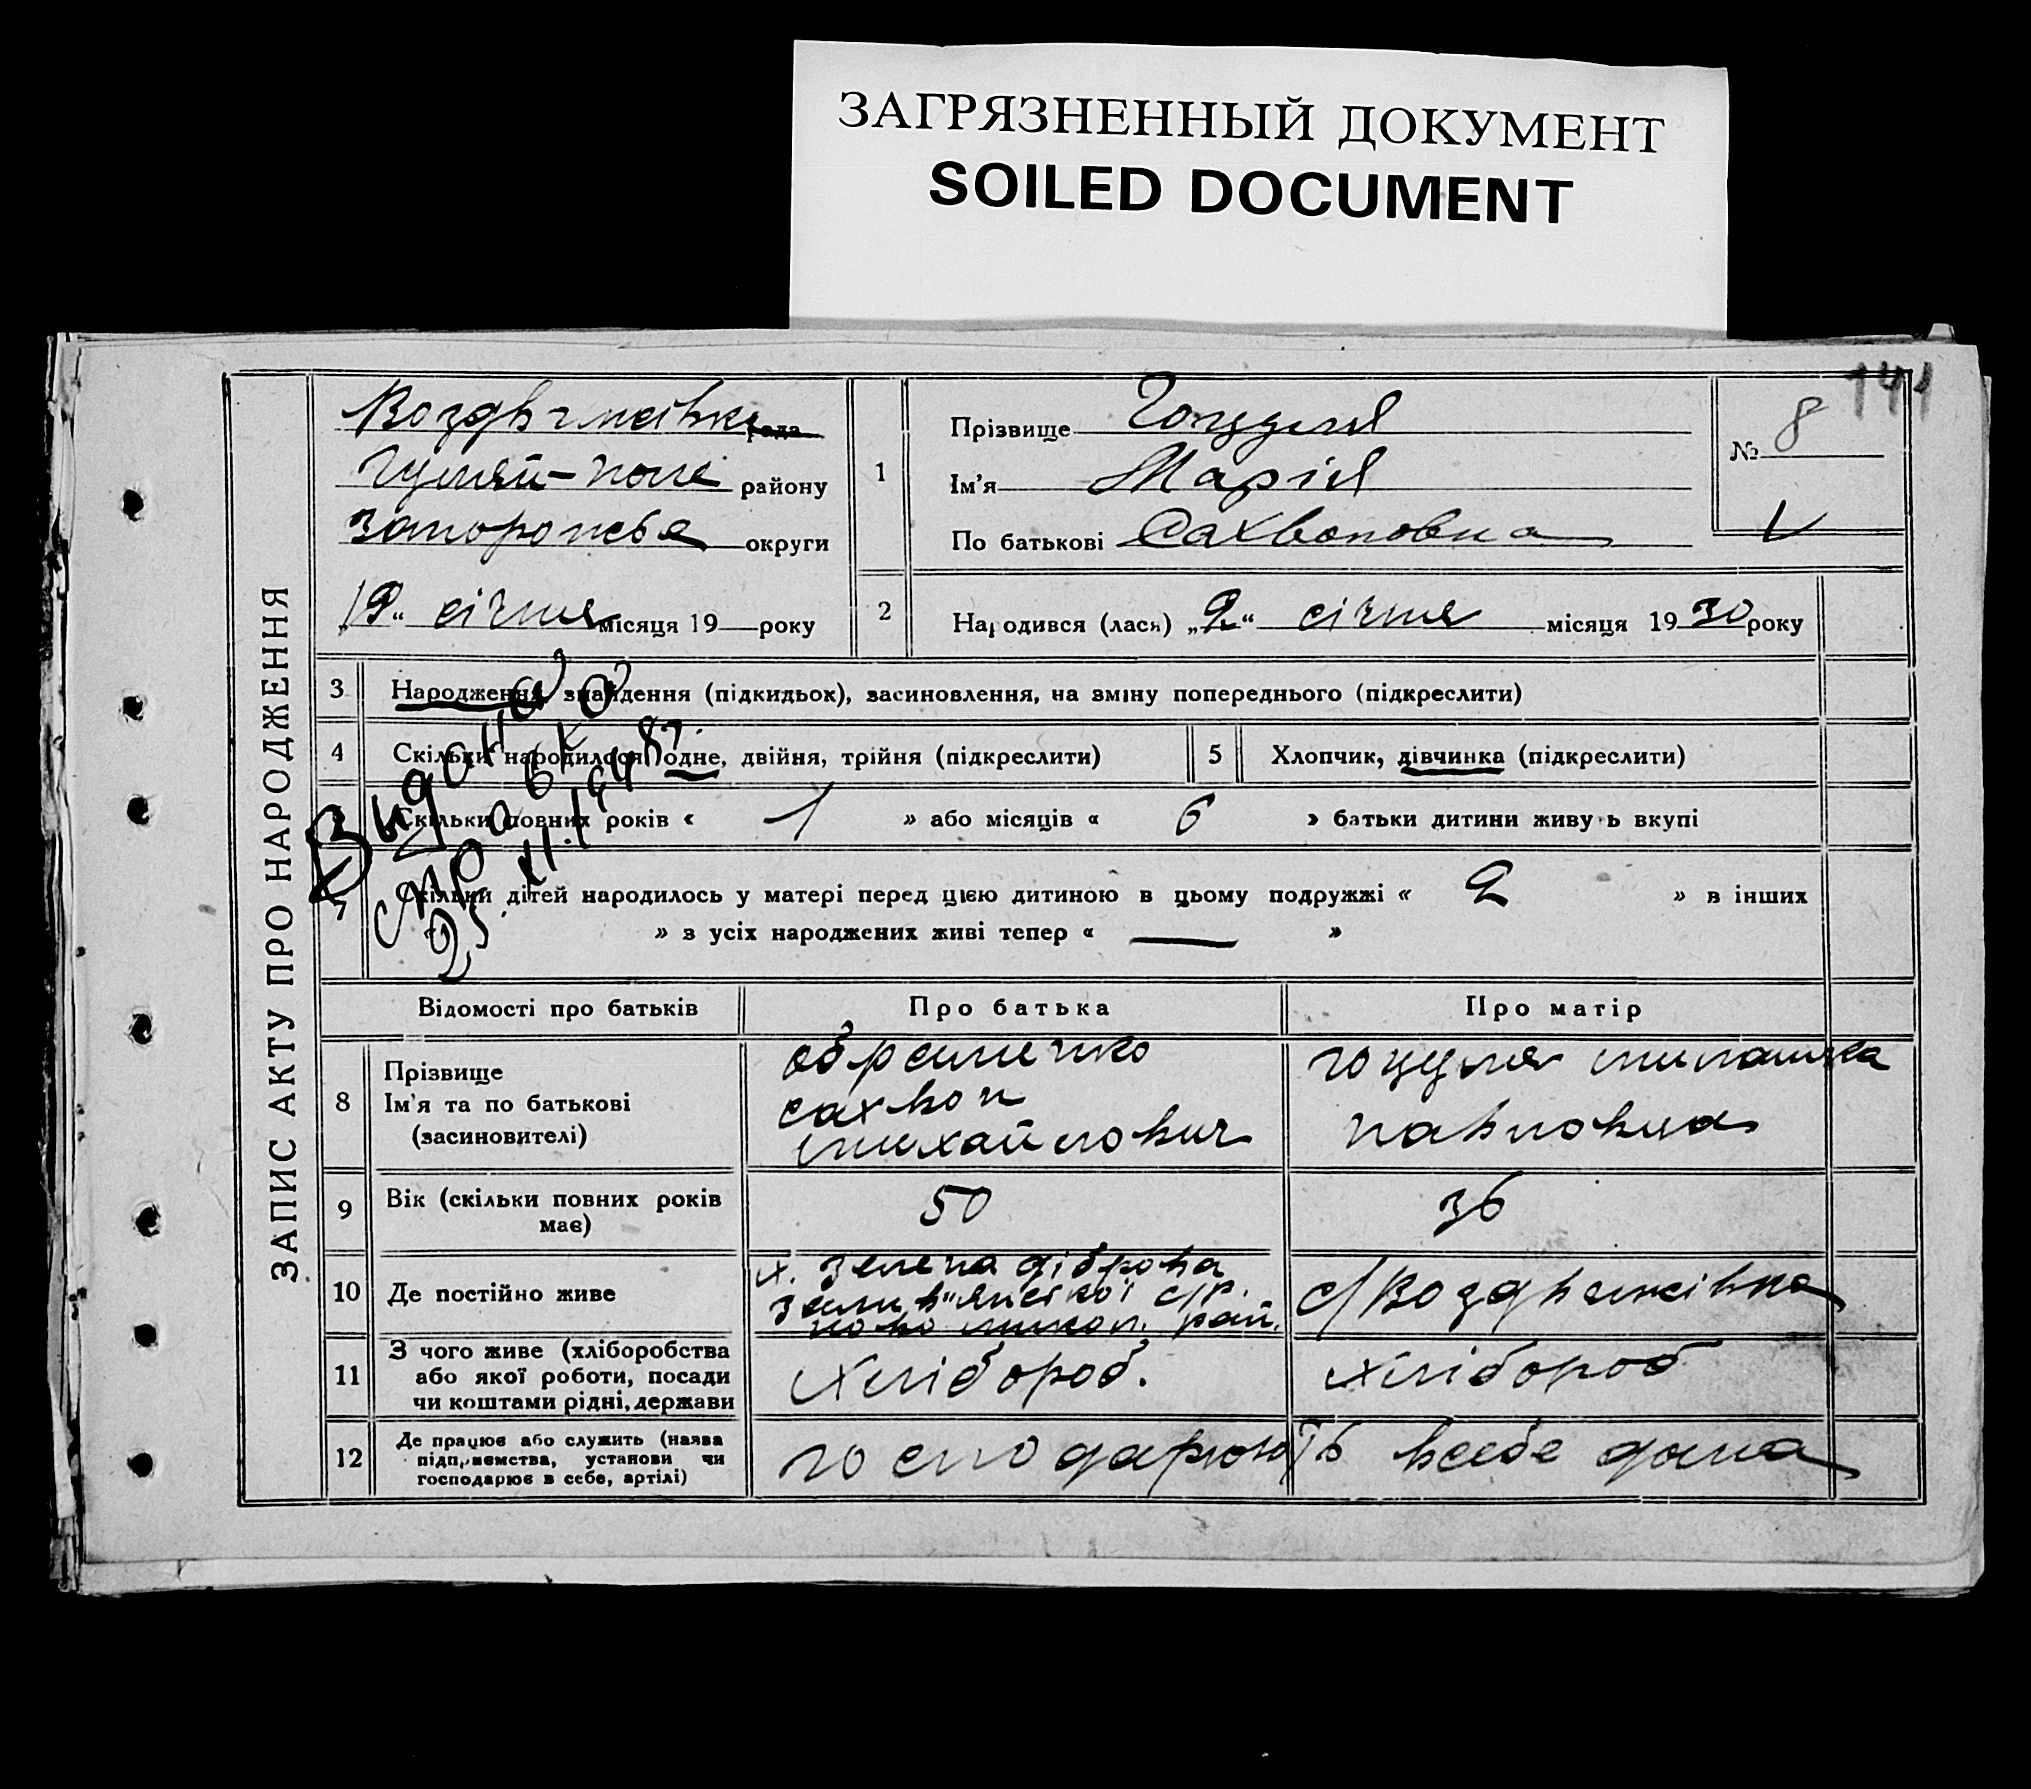 ЗАГРЯЗНЕННЫЙ ДОКУМЕНТ
SOILED DOCUMENT
141
ЗАПИС АКТУ ПРО НАРОДЖЕННЯ
Воздвижівка рада
Гуляй-поле району
Запоріжжя округи
"19" січня місяця 19 року
1
Прізвище Гоцуля
Ім'я Марія
По батькові Сахвоновна
№ 8
V
2
Народився (лась) „2“ січня місяця 1930 року
3 Народження, знайдення (підкидьок), засиновлення, на зміну попереднього (підкреслити)
4 Скільки народилося: одне, двійня, трійня (підкреслити)
5 Хлопчик, дівчинка (підкреслити)
Скільки повних років « 1 » або місяців « 6 » батьки дитини живуть вкупі
7 Скільки дітей народилось у матері перед цією дитиною в цьому подружжі « 2 » в інших
» з усіх народжених живі тепер « — »
Выдана
справка
25.XI.1948г.
Відомості про батьків
Про батька
Про матір
8
Прізвище
Ім'я та по батькові
(засиновителі)
сахвон
михайлович
гоцуля
павловна
9 Вік (скільки повних років має)
50
36
10 Де постійно живе
х. зелена діброва
с/р.
рай.
с/Воздвижівка
11 З чого живе (хліборобства
або якої роботи, посади
чи коштами рідні, держави
Хлібороб.
хлібороб
12 Де працює або служить (назва
підприємства, установи чи
господарює в себе, артілі)
господарюють всебе дома